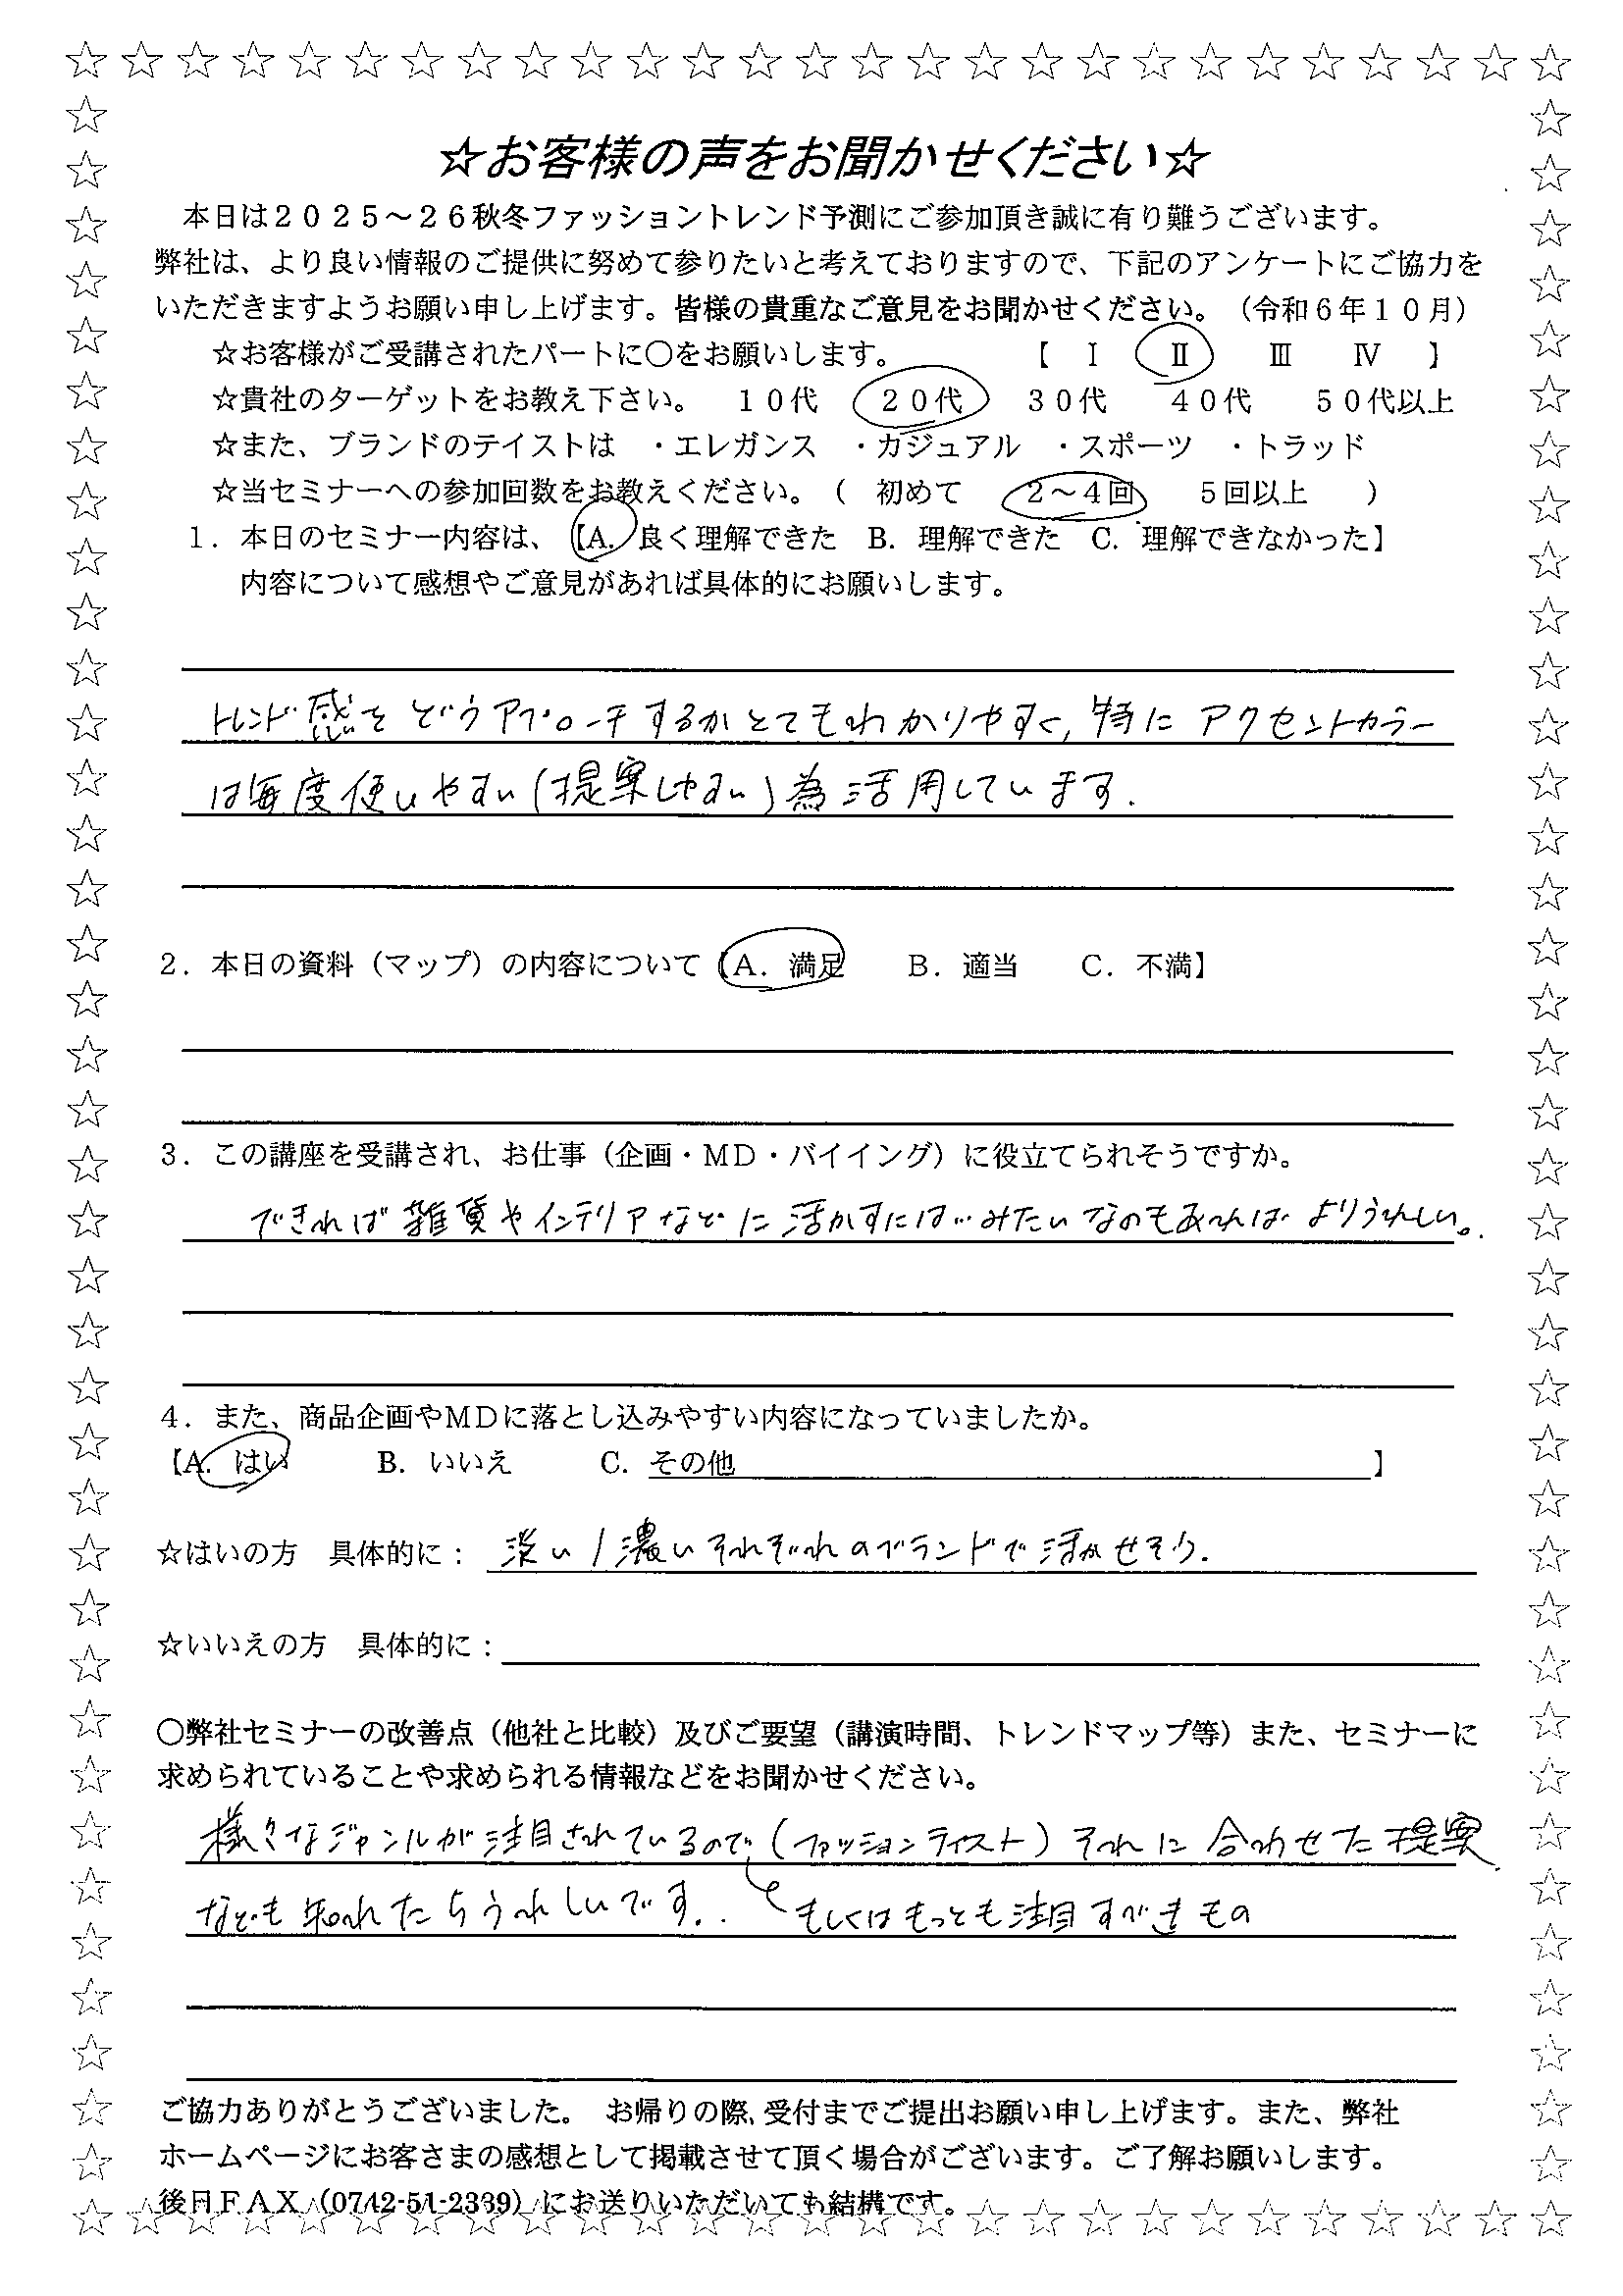 ☆お客様の声をお聞かせください☆
本日は2025～26秋冬ファッショントレンド予測にご参加頂き誠に有り難うございます。
弊社は、より良い情報のご提供に努めて参りたいと考えておりますので、下記のアンケートにご協力を
いただきますようお願い申し上げます。皆様の貴重なご意見をお聞かせください。（令和6年10月）
☆お客様がご受講されたパートに〇をお願いします。 【 Ⅰ Ⅱ Ⅲ Ⅳ 】
☆貴社のターゲットをお教え下さい。 10代 20代 30代 40代 50代以上
☆また、ブランドのテイストは ・エレガンス ・カジュアル ・スポーツ ・トラッド
☆当セミナーへの参加回数をお教えください。（ 初めて 2～4回 5回以上 ）
1．本日のセミナー内容は、【A. 良く理解できた B. 理解できた C. 理解できなかった】
内容について感想やご意見があれば具体的にお願いします。
トレンド感をどうアプローチするかとてもわかりやすく, 特にアクセントカラー
は毎度使いやすい(提案しやすい)為活用しています.
2．本日の資料（マップ）の内容について【A．満足 B．適当 C．不満】
3．この講座を受講され、お仕事（企画・MD・バイイング）に役立てられそうですか。
できれば雑貨やインテリアなどに活かすには…みたいなのもあればよりうれしい。
4．また、商品企画やMDに落とし込みやすい内容になっていましたか。
【A. はい B. いいえ C. その他 】
☆はいの方 具体的に： 淡い/濃いそれぞれのブランドで活かせそう.
☆いいえの方 具体的に：
〇弊社セミナーの改善点（他社と比較）及びご要望（講演時間、トレンドマップ等）また、セミナーに
求められていることや求められる情報などをお聞かせください。
様々なジャンルが注目されているので(ファッションテイスト)それに合わせた提案
なども知れたらうれしいです.. もしくはもっとも注目すべきもの
ご協力ありがとうございました。 お帰りの際、受付までご提出お願い申し上げます。また、弊社
ホームページにお客さまの感想として掲載させて頂く場合がございます。ご了解お願いします。
後日FAX（0742-51-2339）にお送りいただいても結構です。